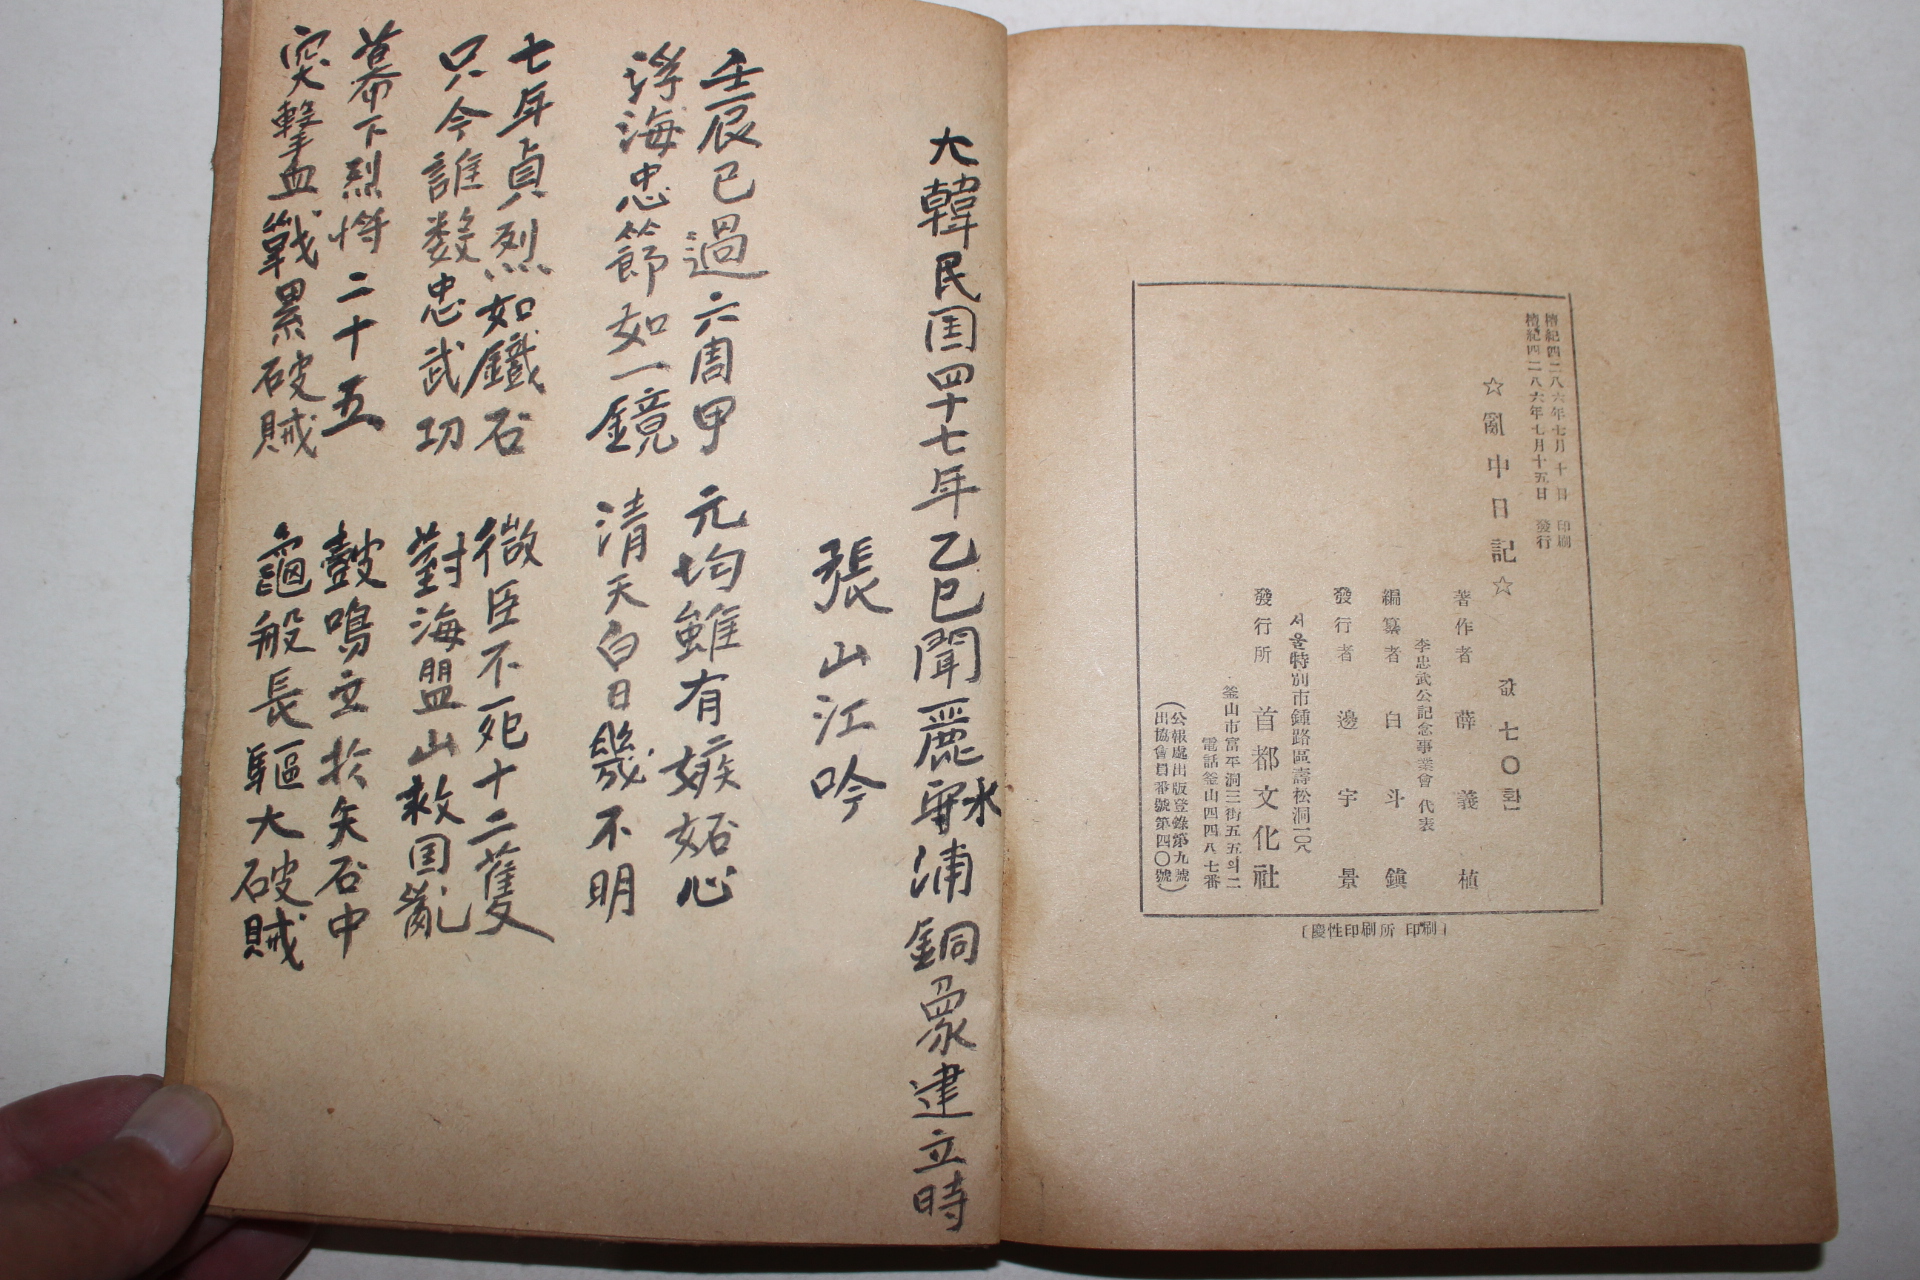 檀紀四二八六年七月 十 日 印刷
檀紀四二八六年七月十五日 發行
☆ 亂中日記 ☆ 값 七〇환
著作者 薛義植
李忠武公記念事業會 代表
編纂者 白斗鎭
發行者 邊宇景
서울特別市鍾路區壽松洞一〇八
發行所 首都文化社
釜山市富平洞三街五五의二
電話釜山四四八七番
(公報處出版登錄第九號
出協會員番號第四〇號)
〔慶性印刷所 印刷〕
大韓民国四十七年乙巳聞麗水浦銅象建立時
張山江吟
壬辰已過六周甲 元均雖有嫉妬心
浮海忠節如一鏡 清天白日幾不明
七年貞烈如鐵石 微臣不死十二隻
只今誰数忠武功 對海盟山救国亂
幕下烈將二十五 鼓鳴立於矢石中
突擊血戰累破賊 龜般長驅大破賊